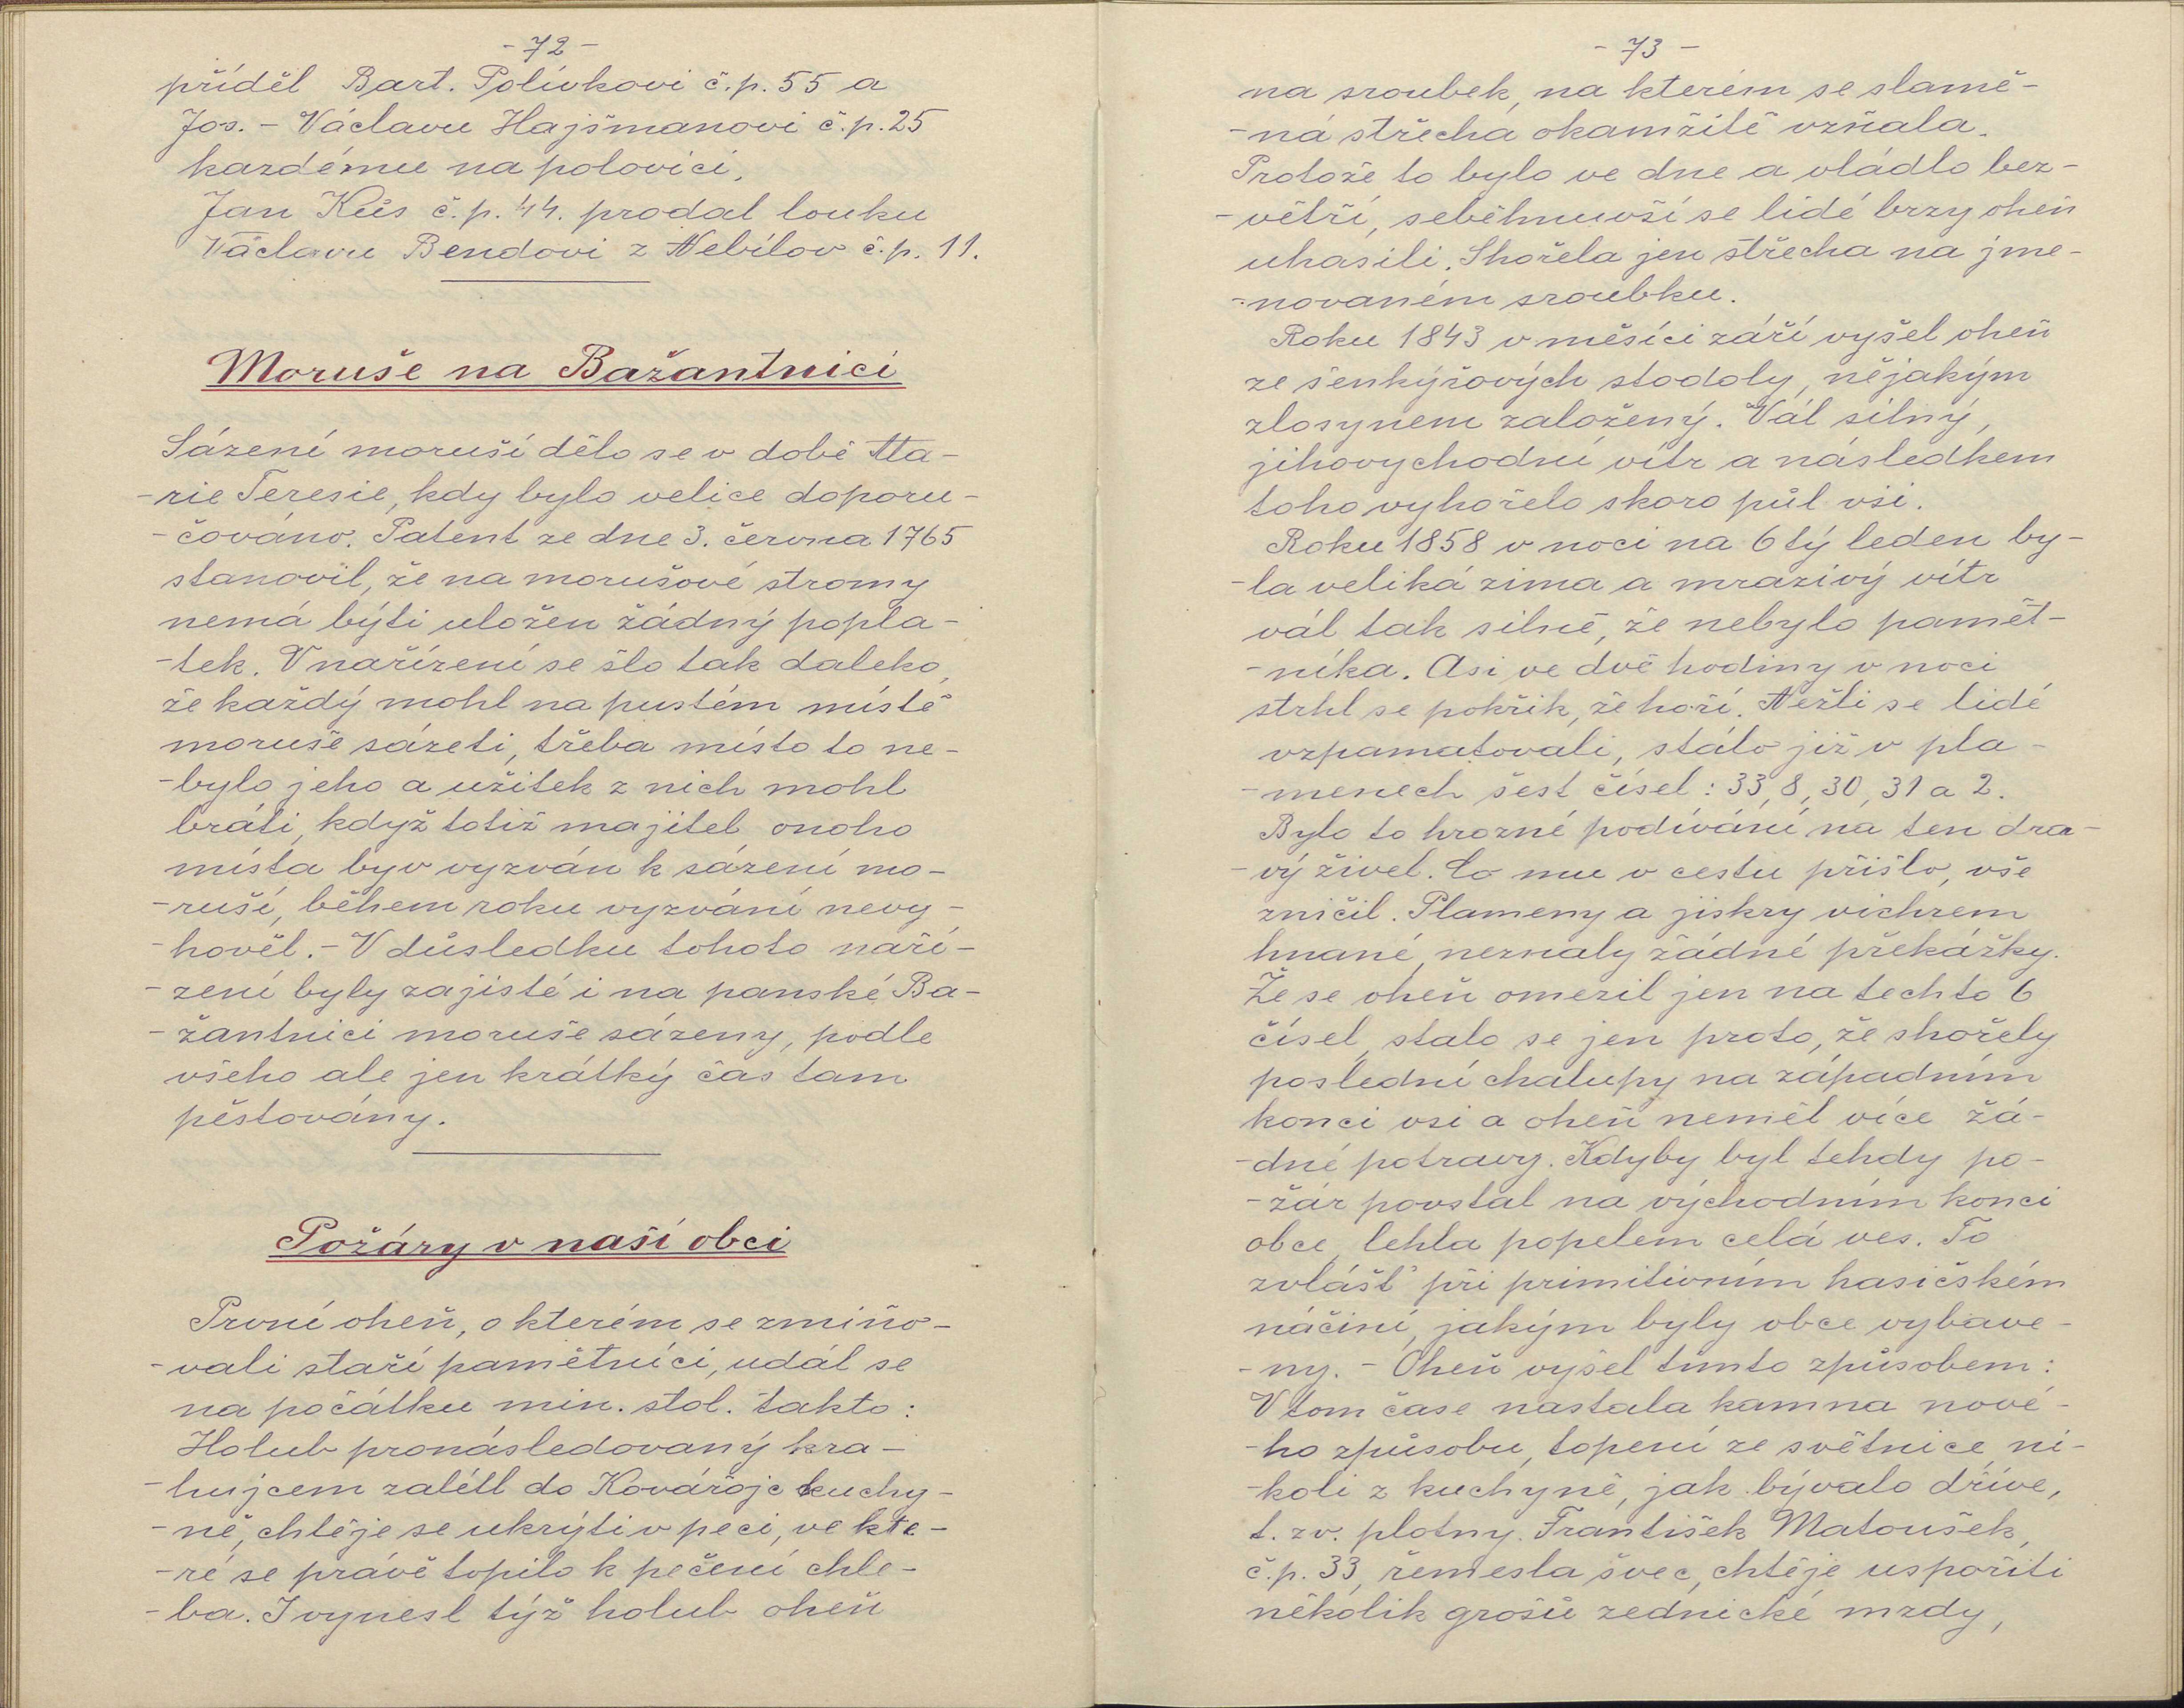 - 72 -
příděl Bart. Polívkovi č.p. 55 a
Jos. - Václavu Hajšmanovi č.p. 25
kazdému na polovici,
Jan Kůs č.p. 44. prodal louku
Václavu Bendovi z Nebílov č.p. 11.
Moruše na Bažantnici
Sázení moruší dělo se v době Ma-
-rie Teresie, kdy bylo velice doporu-
-čováno. Patent ze dne 3. června 1765
stanovil, že na morušové stromy
nemá býti uložen žádný popla-
-tek. V nařízení se šlo tak daleko,
že každý mohl na pustém místě
moruše sázeti, třeba místo to ne-
-bylo jeho a užitek z nich mohl
bráti, když totiž majitel onoho
místa byv vyzván k sázení mo-
-ruší, během roku vyzvání nevy-
-hověl. - V důsledku tohoto naří-
-zení byly zajisté i na panské Ba-
-žantnici moruše sázeny, podle
všeho ale jen krátký čas tam
pěstovány.
Požáry v naší obci
První oheň, o kterém se zmiňo-
-vali staří pamětníci, udál se
na počátku min. stol. takto:
Holub pronásledovaný kra-
-hujcem zalétl do Kovářojc kuchy-
-ně, chtěje se ukrýti v peci, ve kte-
-ré se právě topilo k pečení chle-
-ba. I vynesl týž holub oheň
- 73 -
na sroubek, na kterém se slamě-
-ná střecha okamžitě vzňala.
Protože to bylo ve dne a vládlo bez-
-větří, seběhnuvší se lidé brzy oheň
uhasili. Shořela jen střecha na jme-
-novaném sroubku.
Roku 1843 v měsíci září vyšel oheň
ze šenkýřových stodoly, nějakým
zlosynem založený. Vál silný,
jihovychodní vítr a následkem
toho vyhořelo skoro půl vsi.
Roku 1858 v noci na 6tý leden by-
-la veliká zima a mrazivý vítr
vál tak silně, že nebylo pamět-
-níka. Asi ve dvě hodiny v noci
strhl se pokřik, že hoří. Nežli se lidé
vzpamatovali, stálo již v pla-
-menech šest čísel: 33, 8, 30, 31 a 2.
Bylo to hrozné podívání na ten dra-
-vý živel. Co mu v cestu přišlo, vše
zničil. Plameny a jiskry vichrem
hnané, neznaly žádné překážky.
Že se oheň omezil jen na techto 6
čísel, stalo se jen proto, že shořely
poslední chalupy na západním
konci vsi a oheň neměl více žá-
-dné potravy. Kdyby byl tehdy po-
-žár povstal na východním konci
obce, lehla popelem celá ves. To
zvlášť při primitivním hasičském
náčiní, jakým byly obce vybave-
-ny. - Oheň vyšel tímto způsobem:
V tom čase nastala kamna nové-
-ho způsobu, topení ze světnice, ni-
-koli z kuchyně, jak bývalo dříve,
t. zv. plotny. František Matoušek,
č.p. 33, řemesla švec, chtěje uspořiti
několik grošů zednické mzdy,